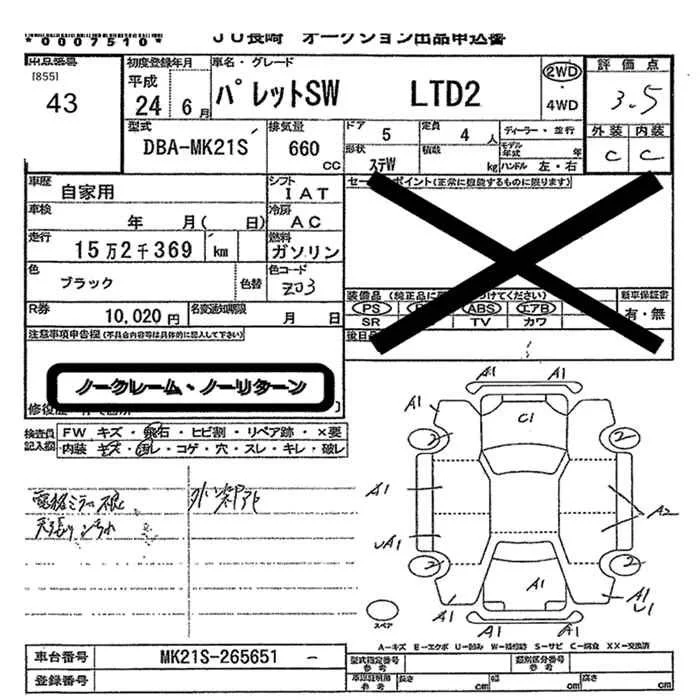 *0007510*
JU長崎 オークション出品申込書
出品番号
[855]
43
初度登録年月
平成
24 6月
車名・グレード
パレットSW LTD2
2WD
・
4WD
評価点
3.5
型式
DBA-MK21S
排気量
660
CC
ドア 5
定員 4 人
ディーラー・並行
形状
ステW
積載 kg
モデル
年式 年
ハンドル 左・右
外装 内装
C C
車歴
自家用
シフト
IAT
車検
年 月( 日)
冷房
AC
走行
15万2千369 km
燃料
ガソリン
色
ブラック
色替
色コード
Z03
R券
10,020円
名変通知期限
月 日
セー ポイント(正常に機能するものに限ります)
装備品(純正品に つけてください)
PS ABS エアB
SR TV カワ
新車保証書
有・無
後日品
注意事項申告欄(不具合内容等は具体的に記入して下さい)
ノークレーム・ノーリターン
修復歴
検査員
記入欄
FW キズ・飛石・ヒビ割・リペア跡・×要
内装 キズ・汚レ・コゲ・穴・スレ・キレ・破レ
電格ミラー不良
天張り
A1 A1
A1 C1 A1
2 2
A1 A2
UA1
2 2
A1 A1 A1
U1
A1 A1
スペア
A-キズ E-エクボ U-凹み W-補修跡 S-サビ C-腐食 XX-交換済
車台番号
MK21S-265651 -
登録番号
型式指定番号
参考
類別区分番号
参考
車認証明用
参考
長さ cm
幅 cm
高さ cm